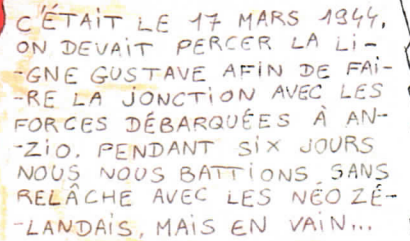 C'ÉTAIT LE 17 MARS 1944.
ON DEVAIT PERCER LA LI-
-GNE GUSTAVE AFIN DE FAI-
-RE LA JONCTION AVEC LES
FORCES DÉBARQUÉES À AN-
-ZIO. PENDANT SIX JOURS
NOUS NOUS BATTIONS SANS
RELÂCHE AVEC LES NÉO ZÉ-
-LANDAIS, MAIS EN VAIN...